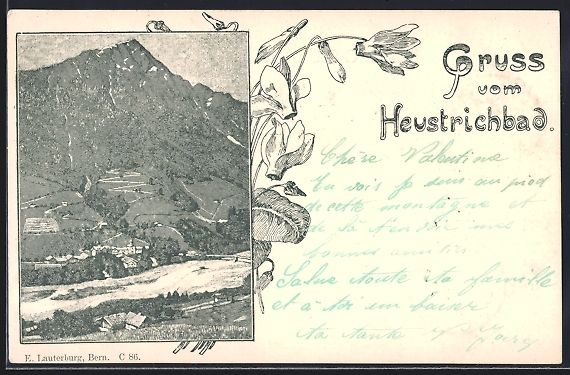 Gruss
vom
Heustrichbad.
Chère Valentine
Tu vois je suis au pied
de cette montagne et
de là t'envoie mes
bonnes amitiés
Salue toute ta famille
et à toi un baiser
ta tante
E. Lauterburg, Bern. C 86.